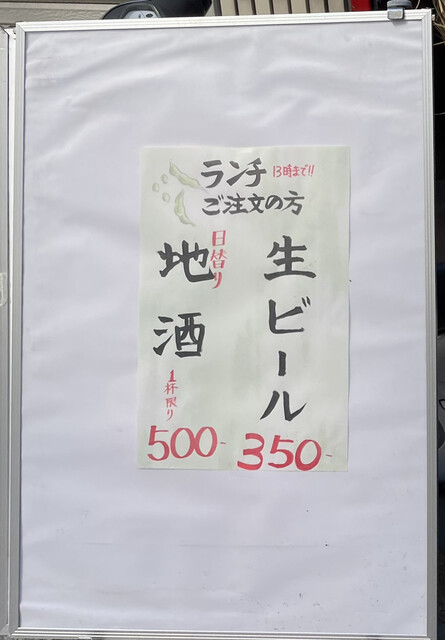 ランチ 13時まで!!
ご注文の方
生ビール
350-
日替り
地酒
1杯限り
500-